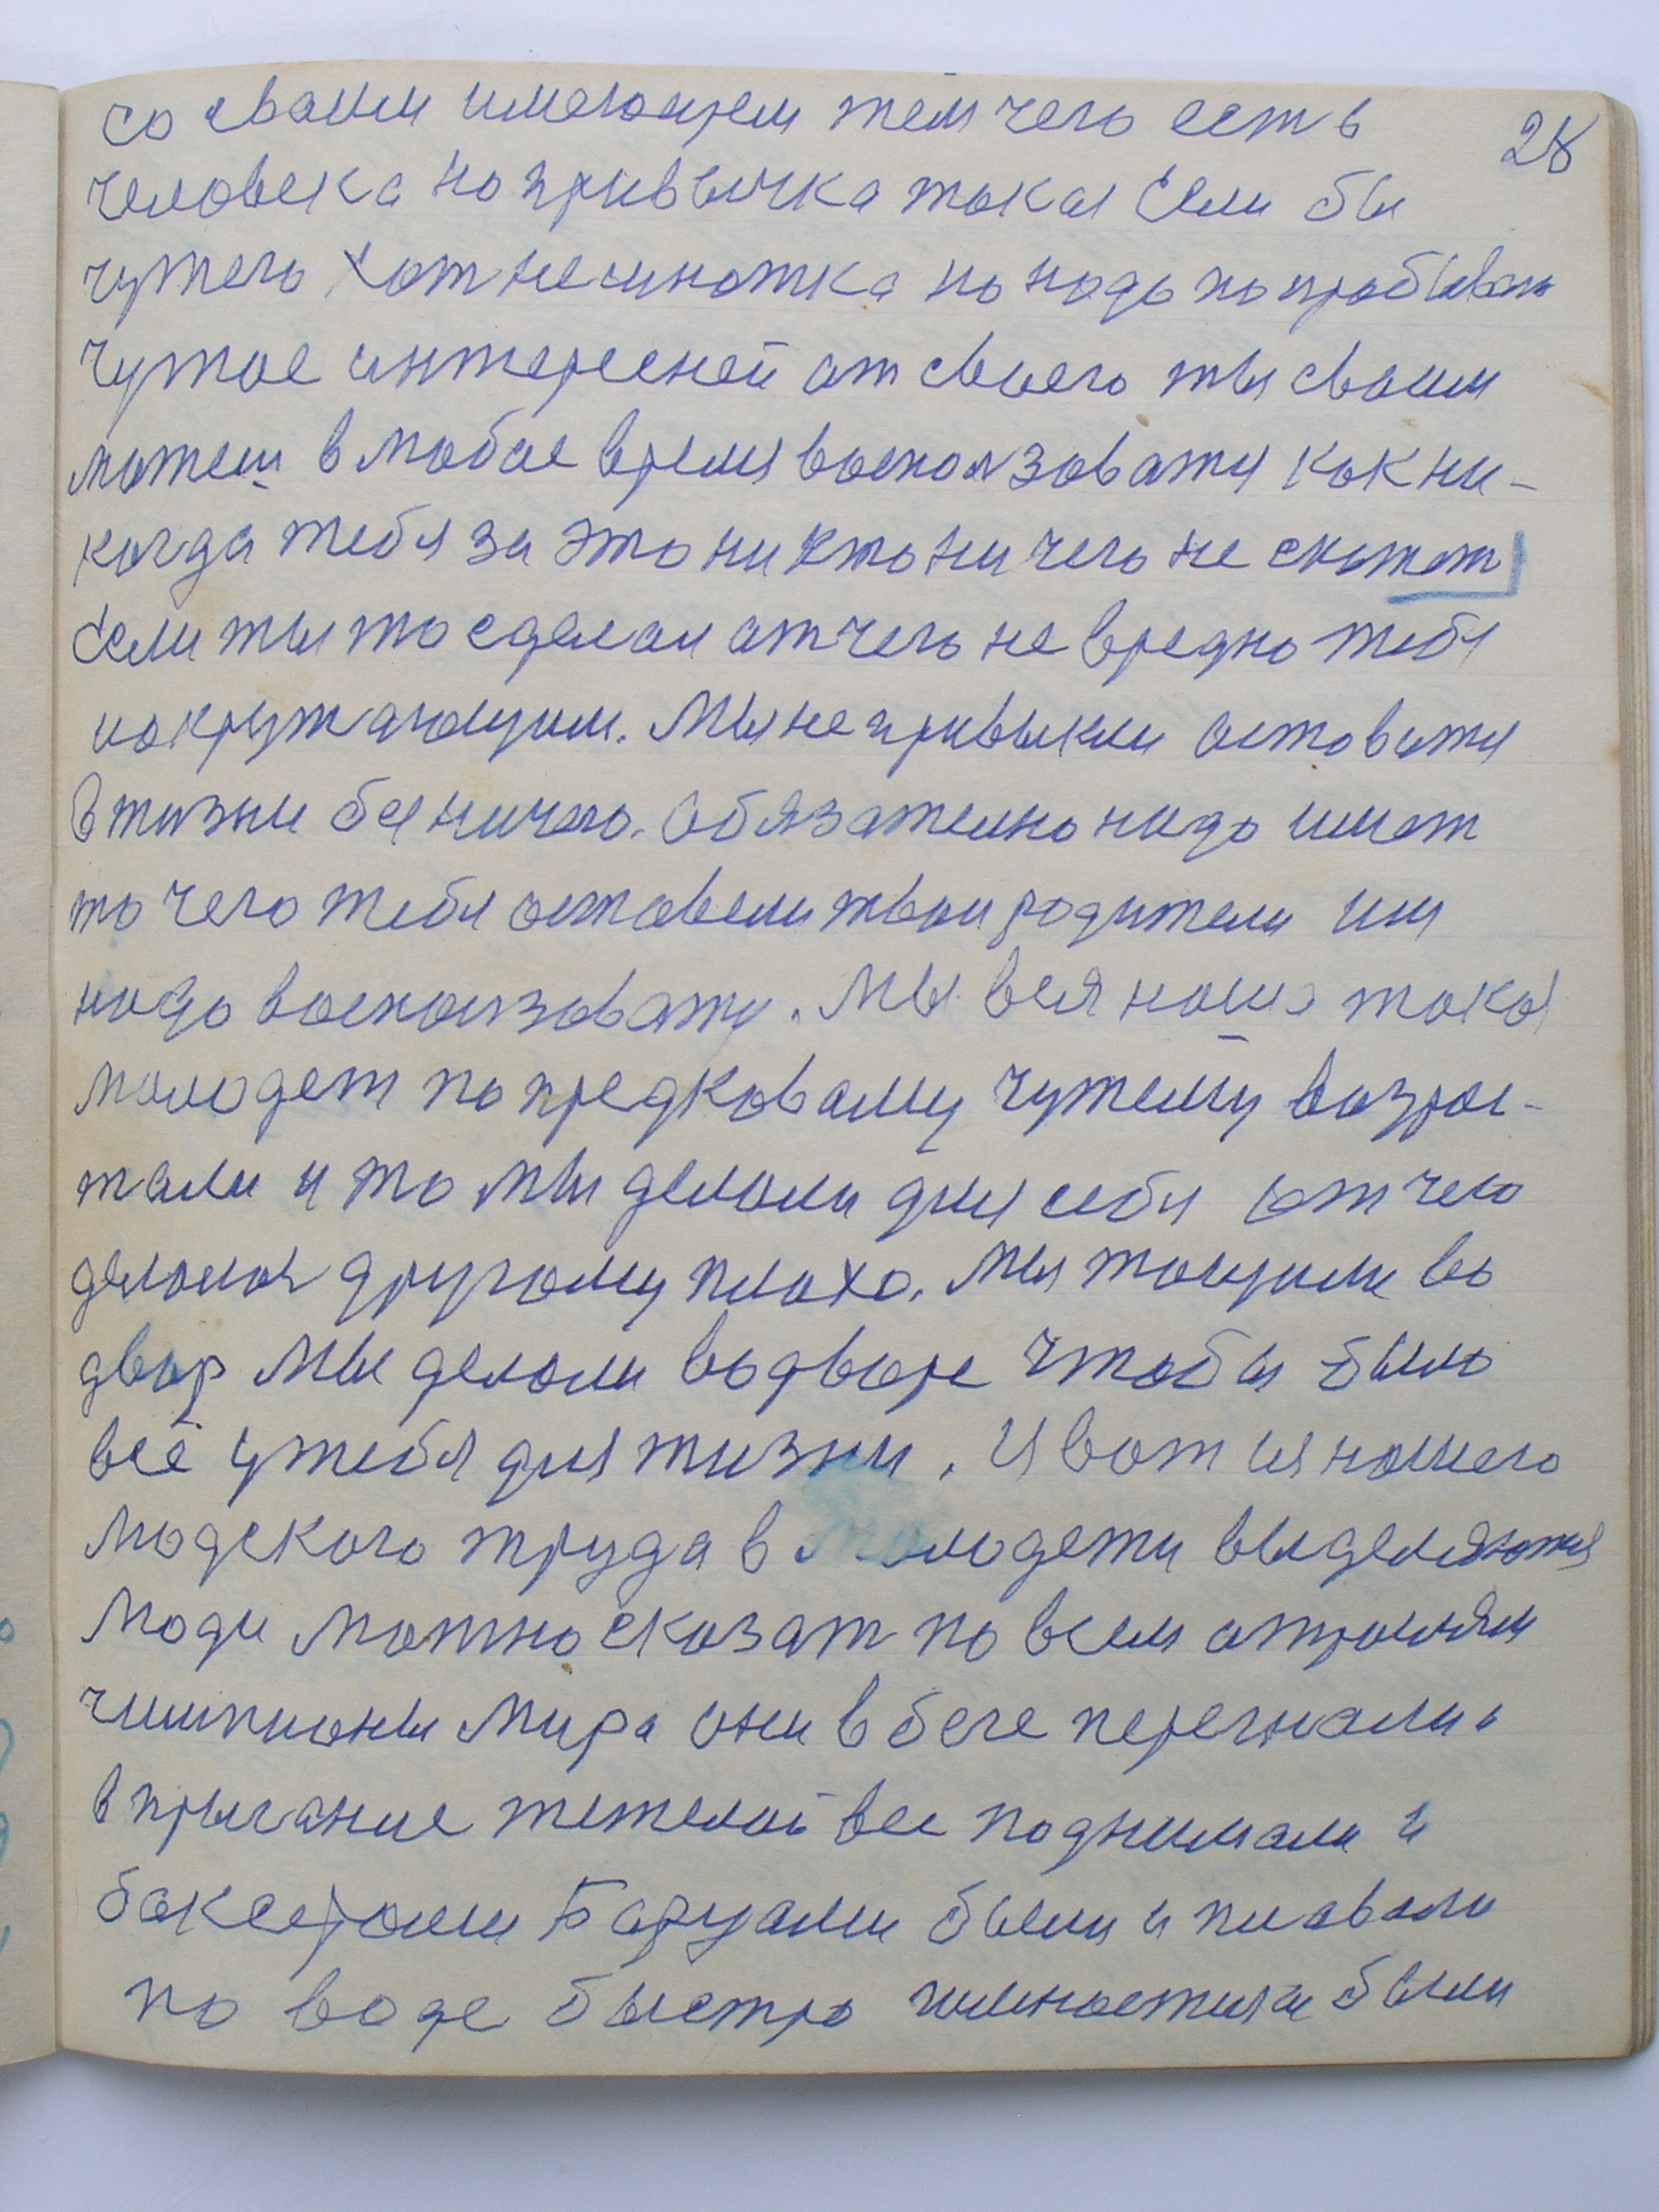 со своим имеющем тем чего есть
28
человека но привычка такая Если бы
чужего хот не много но надо попробыват
Чужое интересней от своего ты своим
можеш в любое время воспользоватя как ни-
когда тебя за это ни кто ни чего не скажет
Если ты то сделал от чего не вредно тебя
и окружающим. Мы не привыкли оставатя
в жизни без ничего. Обязателно надо имет
то чего тебя оставели твои родители им
надо воспользоватя. Мы вся наша такая
молодеж по предковаму чужему возрос-
тали и то мы делали для себя от чего
делалоя другому плохо. Мы тощили во
двор мы делали во дворе чтобы было
всё у тебя для жизни. И вот из нашего
людского труда в молодежи выделяютя
люди можно сказат по всем отрослям
чимпионы мира они в беге перегнали
в прыгание тежелой вес поднимали и
баксерами Борцами были и плавали
по воде быстро гимнастики были